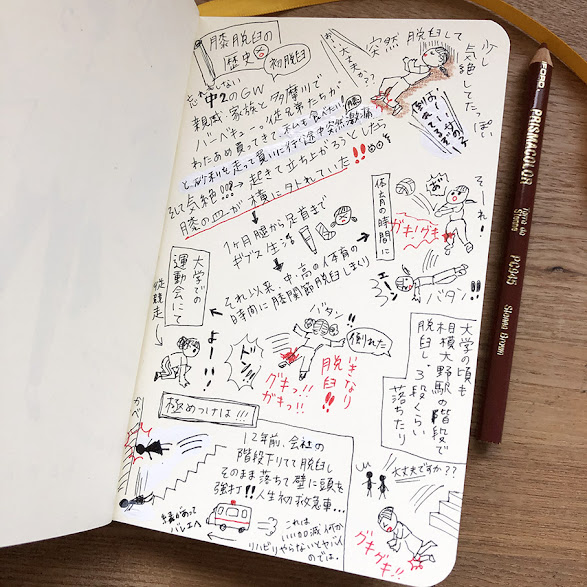 膝脱臼の
歴史
初脱臼
忘れもしない
中2のGW
親戚家族と多摩川で
バーベキュー。従兄弟たちが
わたあめ買ってきて、私も食べたい!
と、砂利を走って買いに行く途中突然激痛
そして気絶!!!→起きて立ち上がろうとしたら
膝の皿が横に外れていた!!
お、大丈夫か??
突然脱臼して
少し
気絶してたっぽい
1ヶ月腿から足首まで
ギプス生活
それ以来、中・高の体育の
時間に膝関節脱臼しまくり
体育の時間に
そーれ!
ガキ!グキ!
バタン!
大学での
運動会にて
徒競走
よーい!
ドン!!
バターン!
倒れた
いきなり
脱臼!!
グキっ!!
ガキっ!!
大学の頃も
相模大野駅の階段で
脱臼し、3段くらい
落ちたり
大丈夫ですか??
グキグキ!!
極めつけは!!!
かべ
12年前、会社の
階段下りてて脱臼し
そのまま落ちて壁に頭を
強打!!人生初救急車…
これは
いい加減何か
リハビリやらないとヤバイ
のでは。
縁があって
バレエへ
PRISMACOLOR
PC945
Sienna Brown